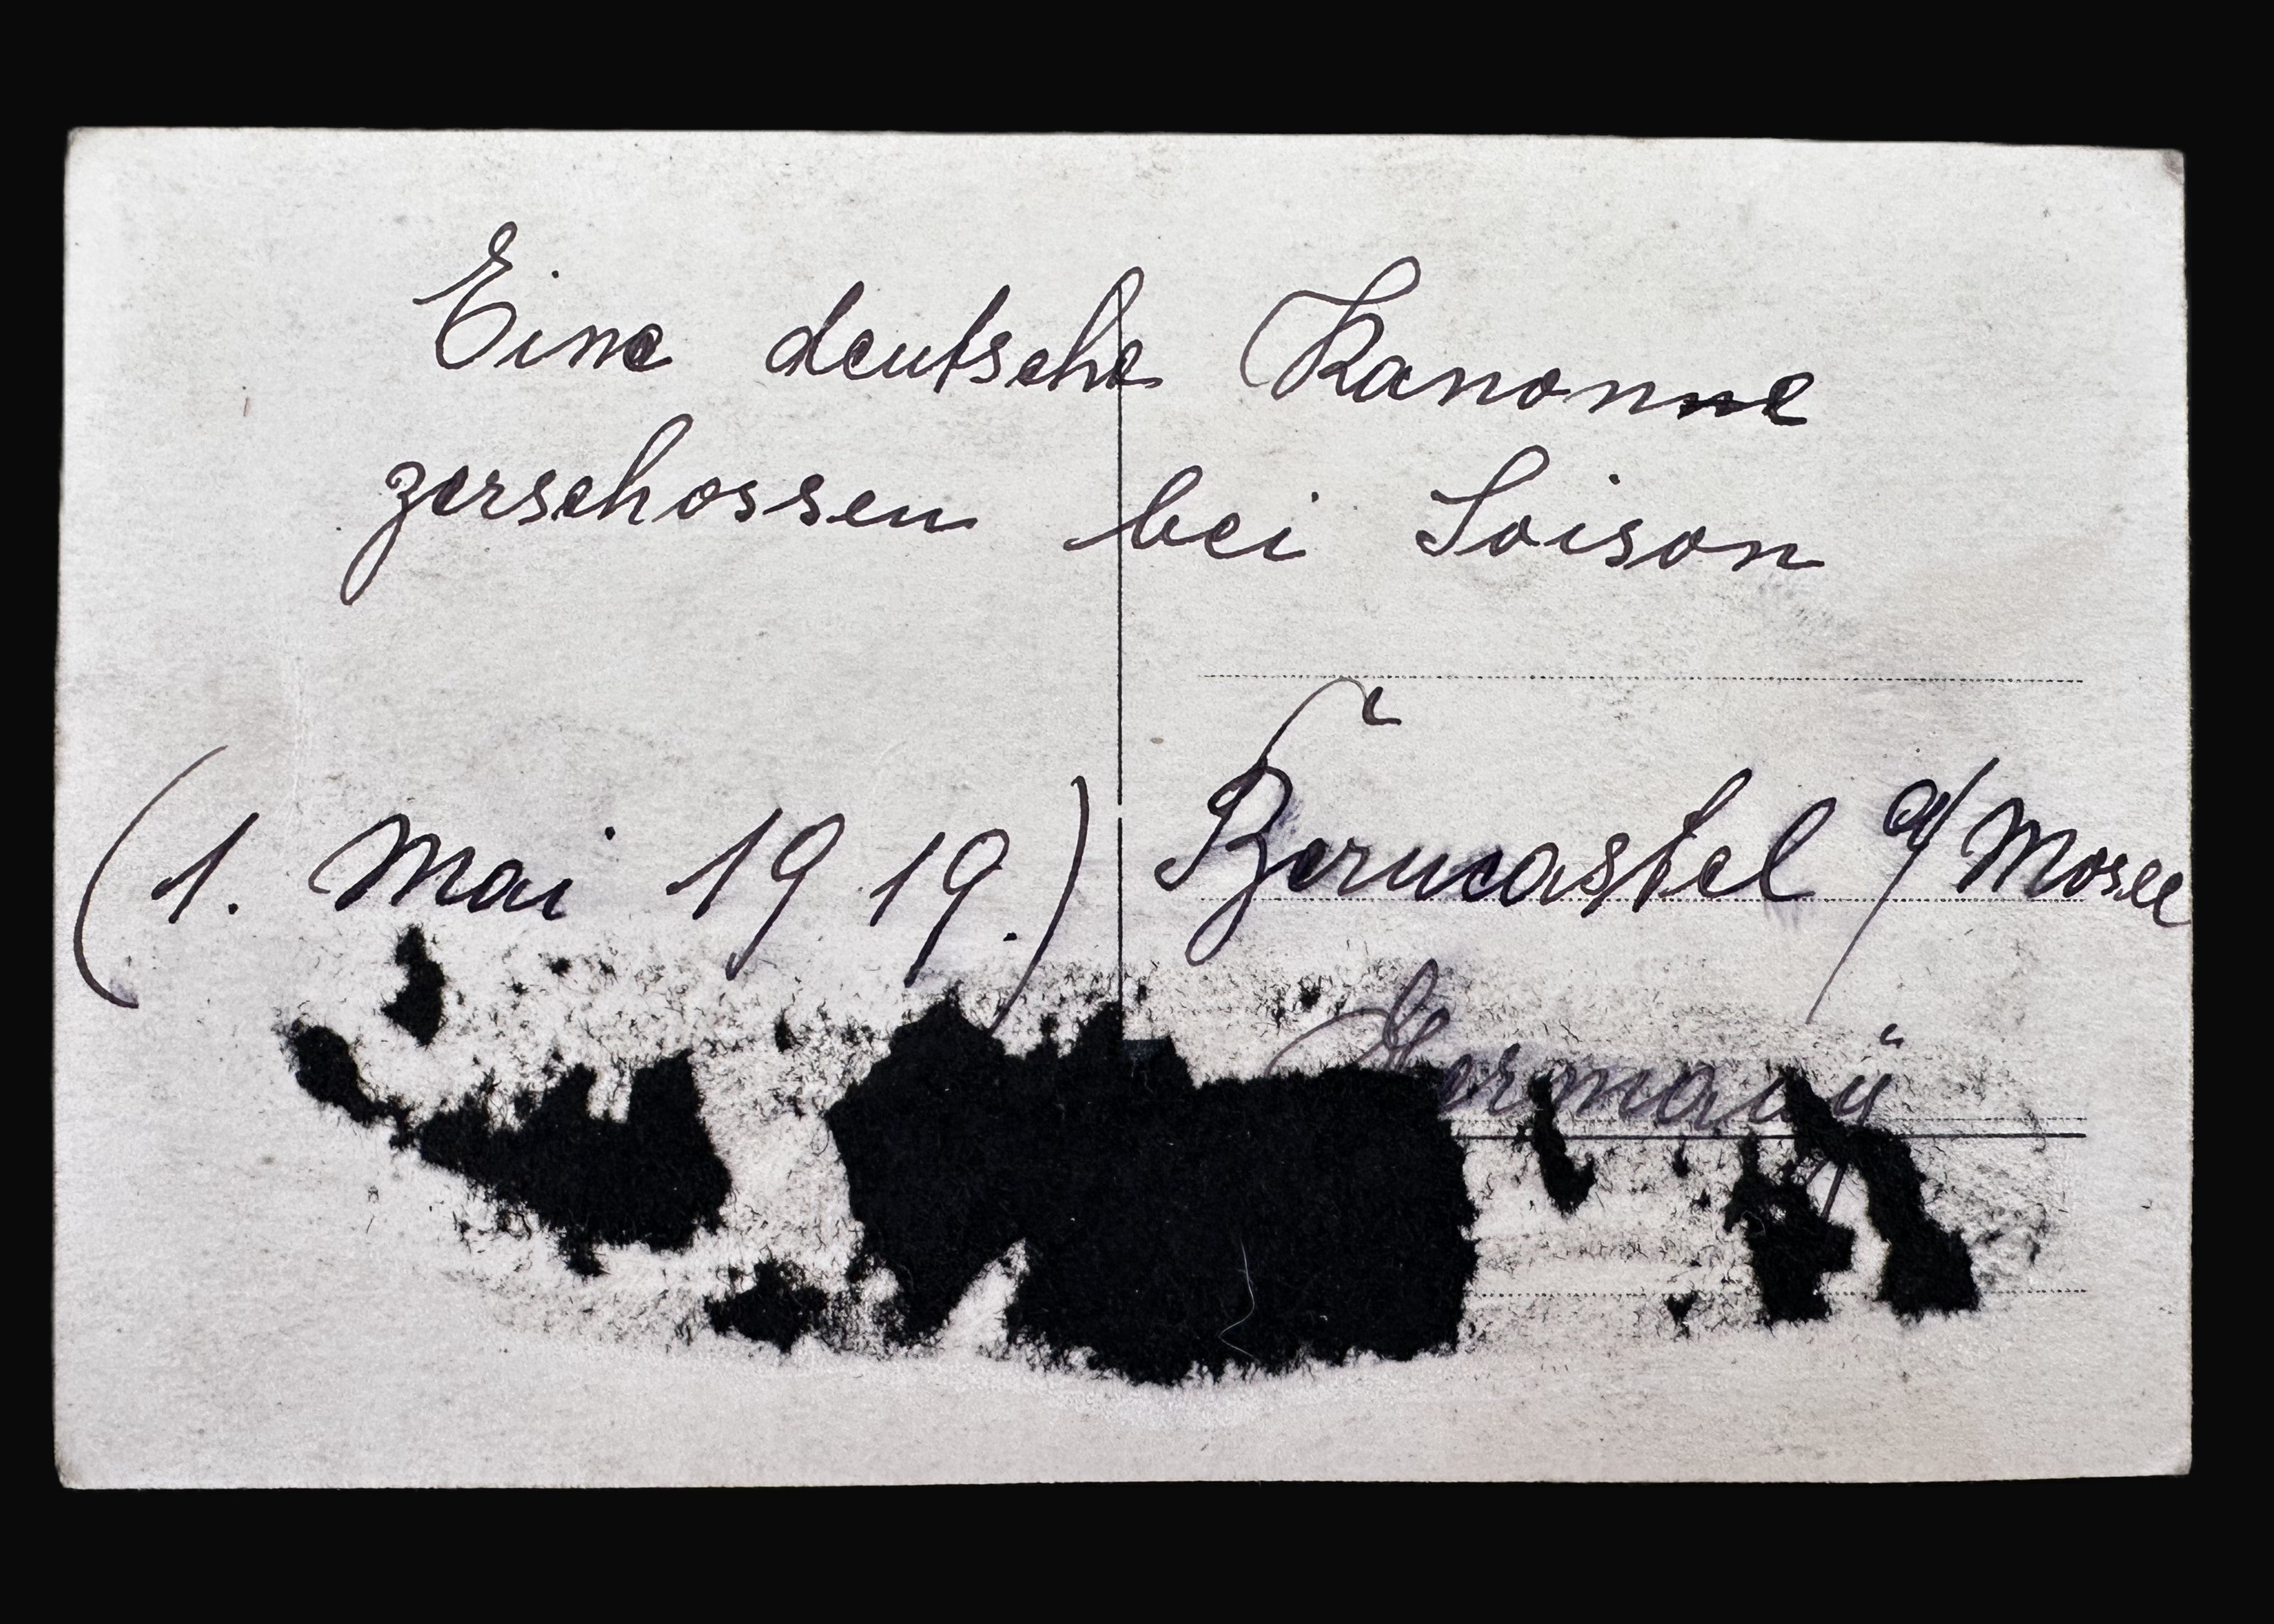 Eine deutsche Kanonne
zerschossen bei Soison
(1. Mai 1919.)
Berncastel a/Mosel
Germany